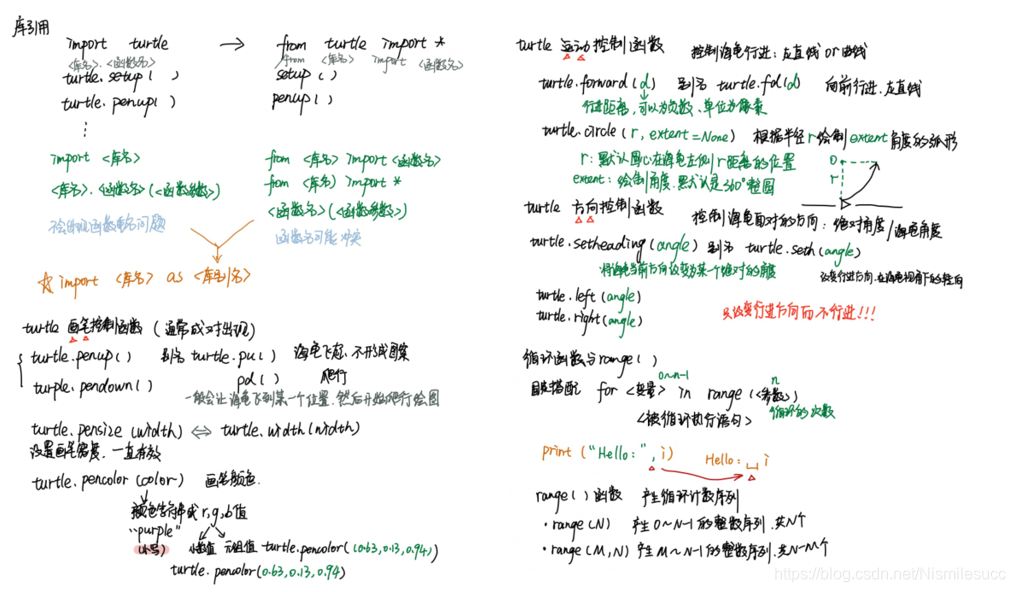 库引用
import turtle → from turtle import *
<库名>.<函数名> from <库名> import <函数名>
turtle.setup( ) setup( )
turtle.penup( ) penup( )
⋮
import <库名> from <库名> import <函数名>
from <库名> import *
<库名>.<函数名>(<函数参数>)
<函数名>(<函数参数>)
不会出现函数重名问题 函数名可能冲突
☆ import <库名> as <库别名>
turtle 画笔控制函数 (通常成对出现)
turtle.penup( ) 别名 turtle.pu( ) 海龟飞起、不形成图案
turple.pendown( ) pd( ) 爬行
一般会让海龟飞到某一个位置,然后开始爬行绘图
turtle.pensize (width) ⇔ turtle.width(width)
设置画笔宽度,一直有效
turtle.pencolor (color) 画笔颜色.
颜色字符串或 r,g,b 值
"purple"
(小写) 小数值 元组值 turtle.pencolor((0.63,0.13,0.94))
turtle.pencolor(0.63,0.13,0.94)
turtle 运动控制函数 控制海龟行进:走直线or曲线
turtle.forward(d) 别名 turtle.fd(d) 向前行进,走直线
行进距离,可以为负数、单位为像素
turtle.circle(r, extent=None) 根据半径r绘制extent角度的弧形
r: 默认圆心在海龟左侧r距离的位置
extent: 绘制角度.默认是360°整圆
turtle 方向控制函数 控制海龟面对的方向:绝对角度/海龟角度
turtle.setheading(angle) 别名 turtle.seth(angle)
将海龟当前方向改变为某一个绝对的角度 改变行进方向.在海龟视角下的转向
turtle.left(angle)
turtle.right(angle) 只改变行进方向而不行进!!!
循环函数与range( )
0~n-1 n
固定搭配 for <变量> in range (<参数>)
<被循环执行语句> 循环的次数
print ("Hello:", i) Hello:␣i
range( )函数 产生循环计数序列
·range(N) 产生 0~N-1 的整数序列.共N个
·range(M,N) 产生 M~N-1的整数序列.共N-M个
https://blog.csdn.net/Nismilesucc